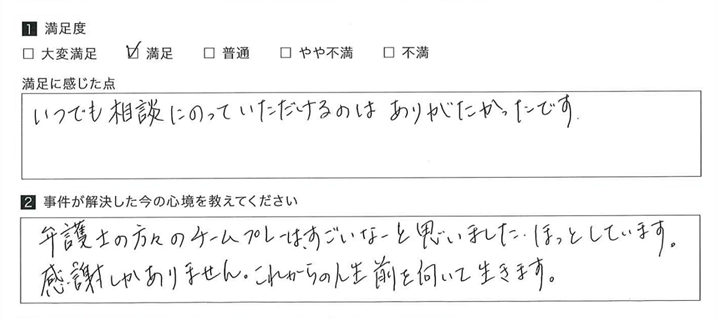 1 満足度
□ 大変満足 ☑ 満足 □ 普通 □ やや不満 □ 不満
満足に感じた点
いつでも相談にのっていただけるのは ありがたかったです.
2 事件が解決した今の心境を教えてください
弁護士の方々のチームプレーは、すごいなーと思いました. ほっとしています。
感謝しかありません。これからの人生前を向いて生きます。